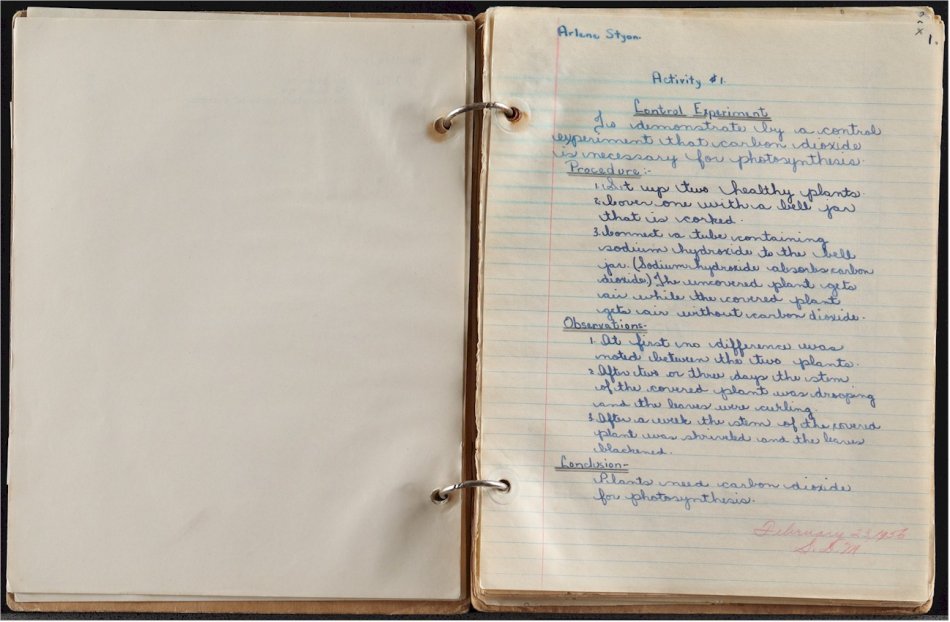 Arlene Styan.
1.
Activity #1.
Control Experiment
To demonstrate by a control
experiment that carbon dioxide
is necessary for photosynthesis.
Procedure:-
1. Set up two healthy plants.
2. Cover one with a bell jar
that is corked.
3. Connect a tube containing
sodium hydroxide to the bell
jar. (Sodium hydroxide absorbs carbon
dioxide.) The uncovered plant gets
air while the covered plant
gets air without carbon dioxide.
Observations:-
1. At first no difference was
noted between the two plants.
2. After two or three days the stem
of the covered plant was drooping
and the leaves were curling.
3. After a week the stem of the covered
plant was shriveled and the leaves
blackened.
Conclusion-
Plants need carbon dioxide
for photosynthesis.
February 1956